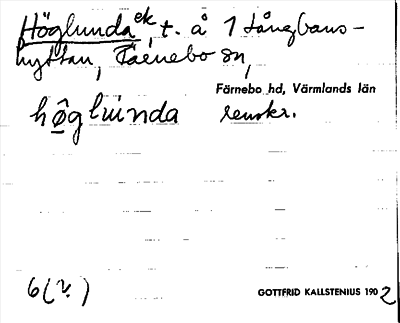 Höglunda ek, t. å 1 Långbans-
hyttan, Färnebo sn,
Färnebo hd, Värmlands län
hø̂glúnda renskr.
6(?)
GOTTFRID KALLSTENIUS 1902